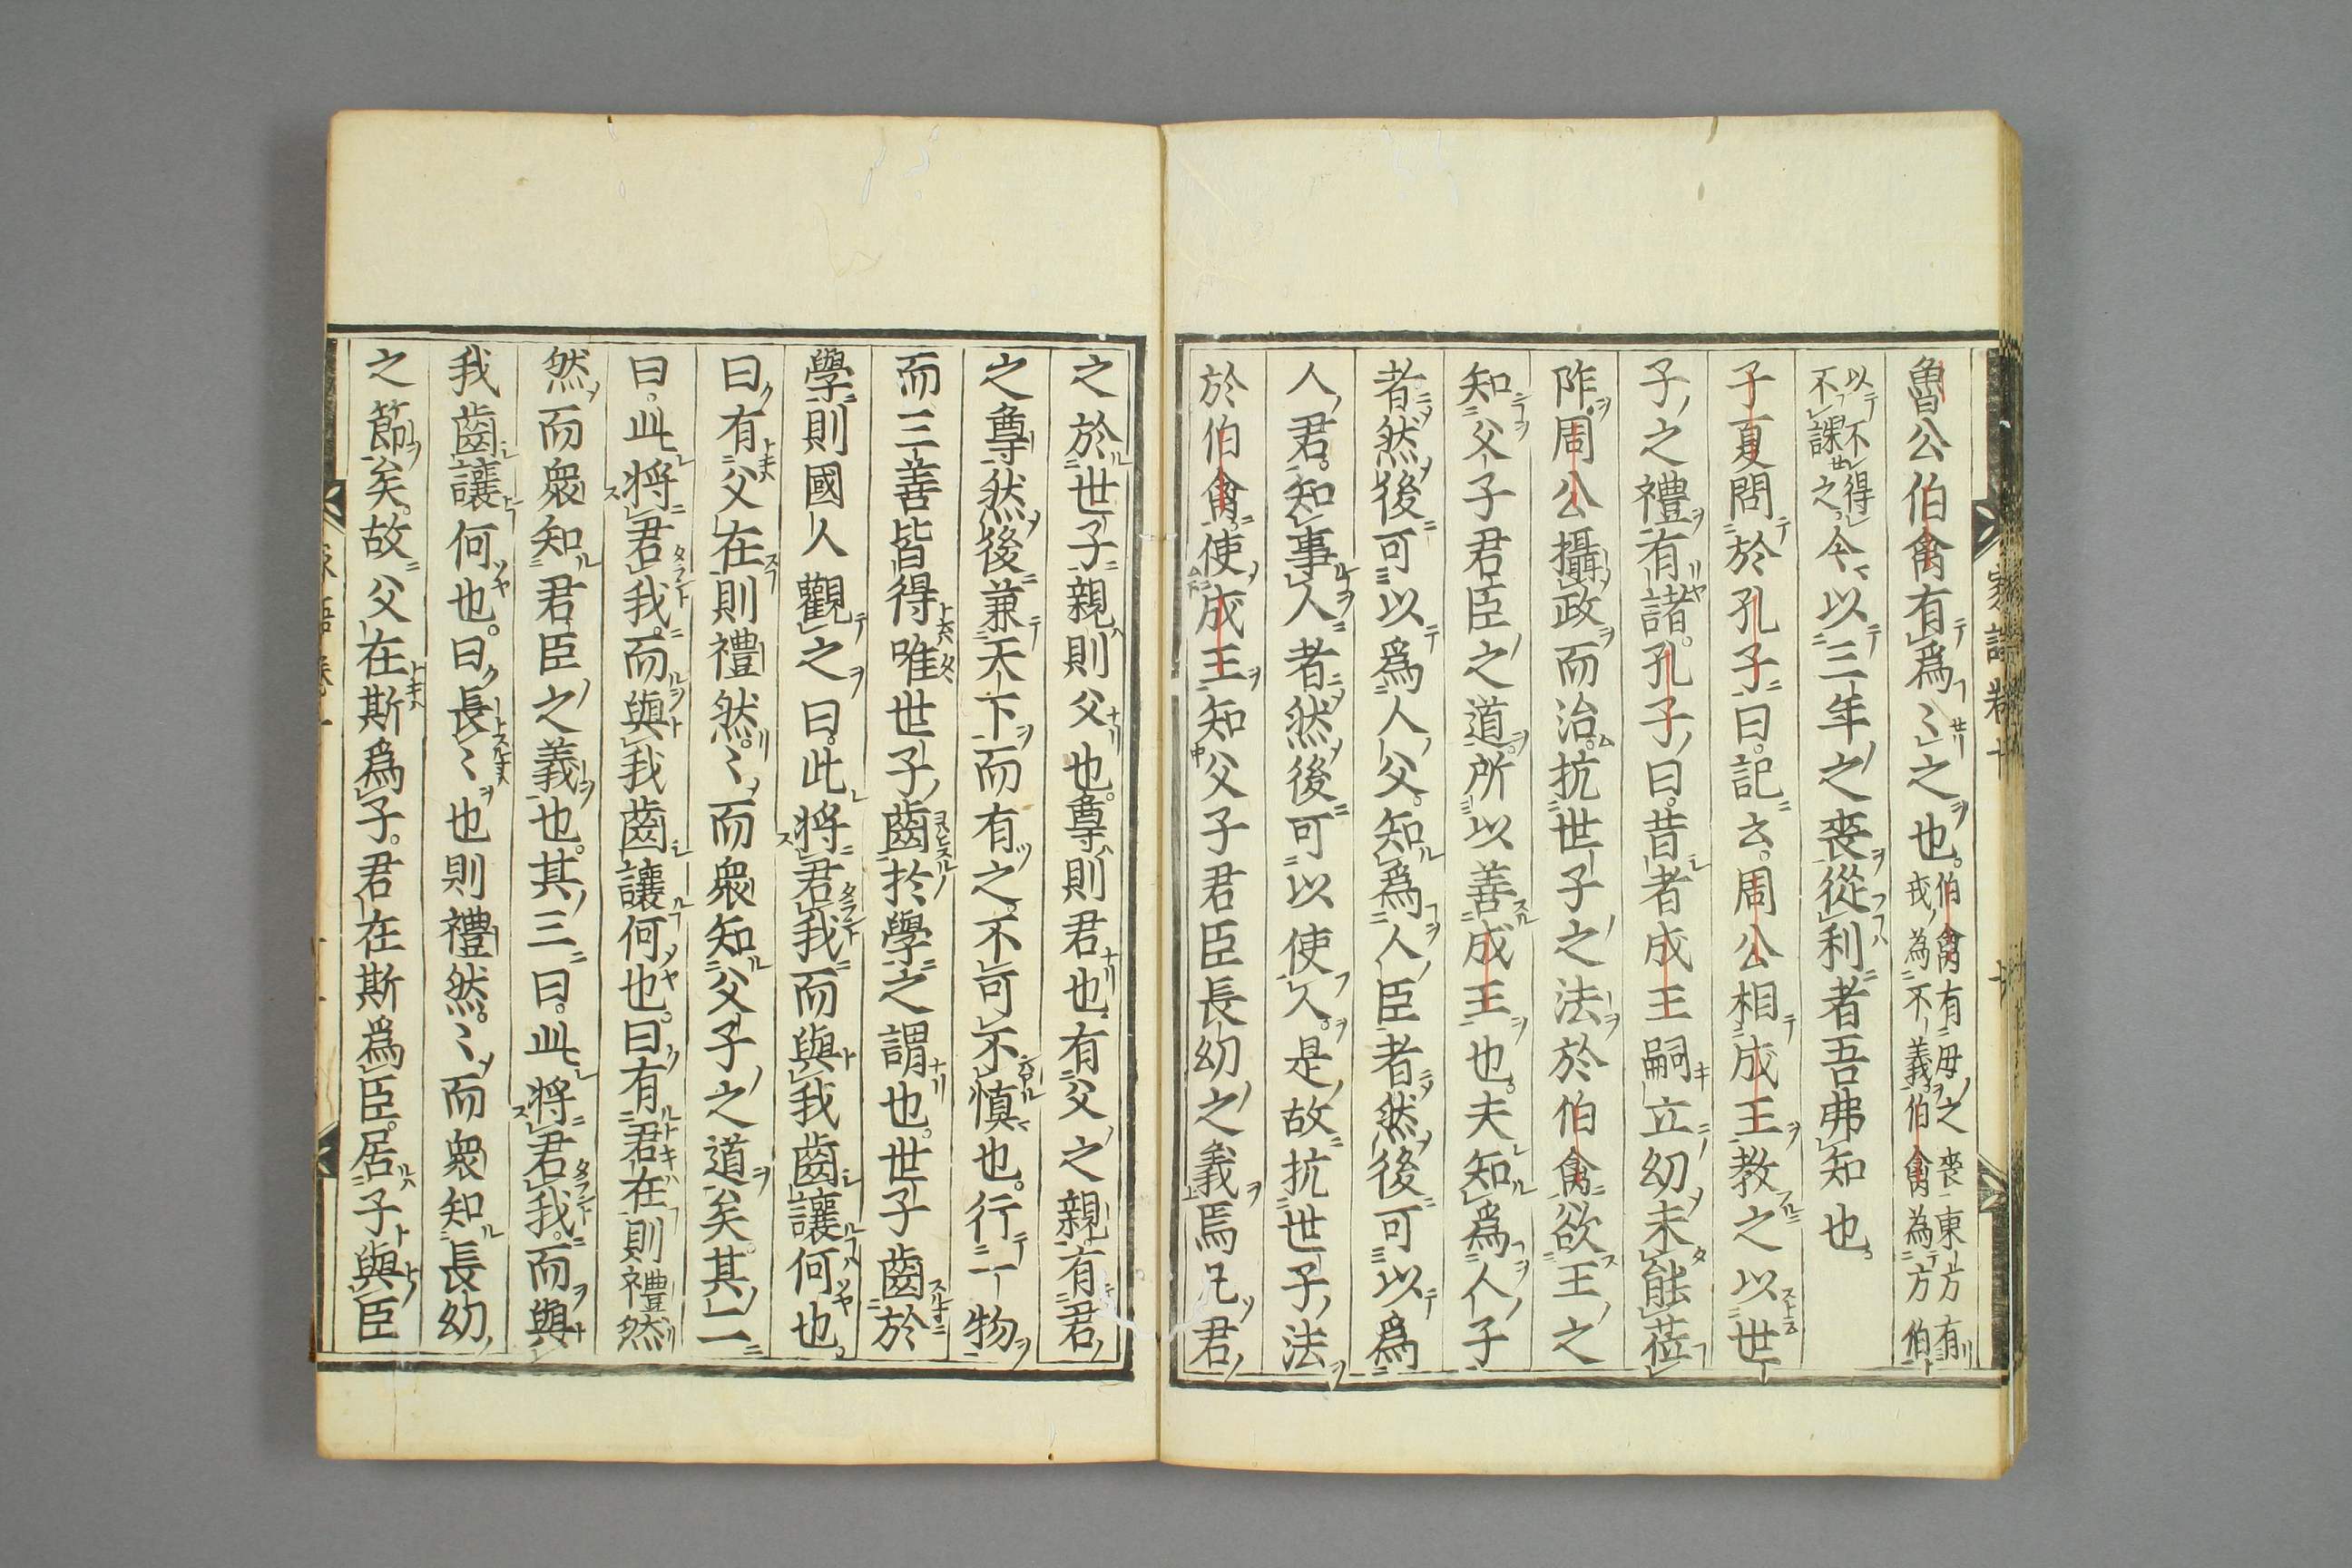 魯公伯禽有爲〻之也。伯禽有母之喪東方有戎為不義伯禽為方伯
以不得不課之今以三年之喪從利者吾弗知也。
子夏問於孔子曰。記云。周公相成王教之以世
子之禮有諸。孔子曰。昔者成王嗣立幼未能莅
阼周公攝政而治。抗世子之法於伯禽欲王之
知父子君臣之道。所以善成王也。夫知爲人子
者然後可以爲人父。知爲人臣者然後可以爲
人君。知事人者然後可以使人。是故抗世子法
於伯禽。使成王知父子君臣長幼之義焉凡君
之於世子親則父也。尊則君也。有父之親。有君
之尊然後兼天下而有之。不可不慎也。行一物
而三善皆得唯世子齒於學之謂也。世子齒於
學則國人觀之曰。此将君我而與我齒讓何也。
曰有父在則禮然。〻而衆知父子之道矣。其二
曰。此将君我。而與我齒讓何也。曰有君在則禮然
然而衆知君臣之義也。其三曰。此将君我。而與
我齒讓何也。曰長〻也則禮然。〻而衆知長幼
之節矣。故父在斯爲子。君在斯爲臣。居子與臣
家語卷十
十